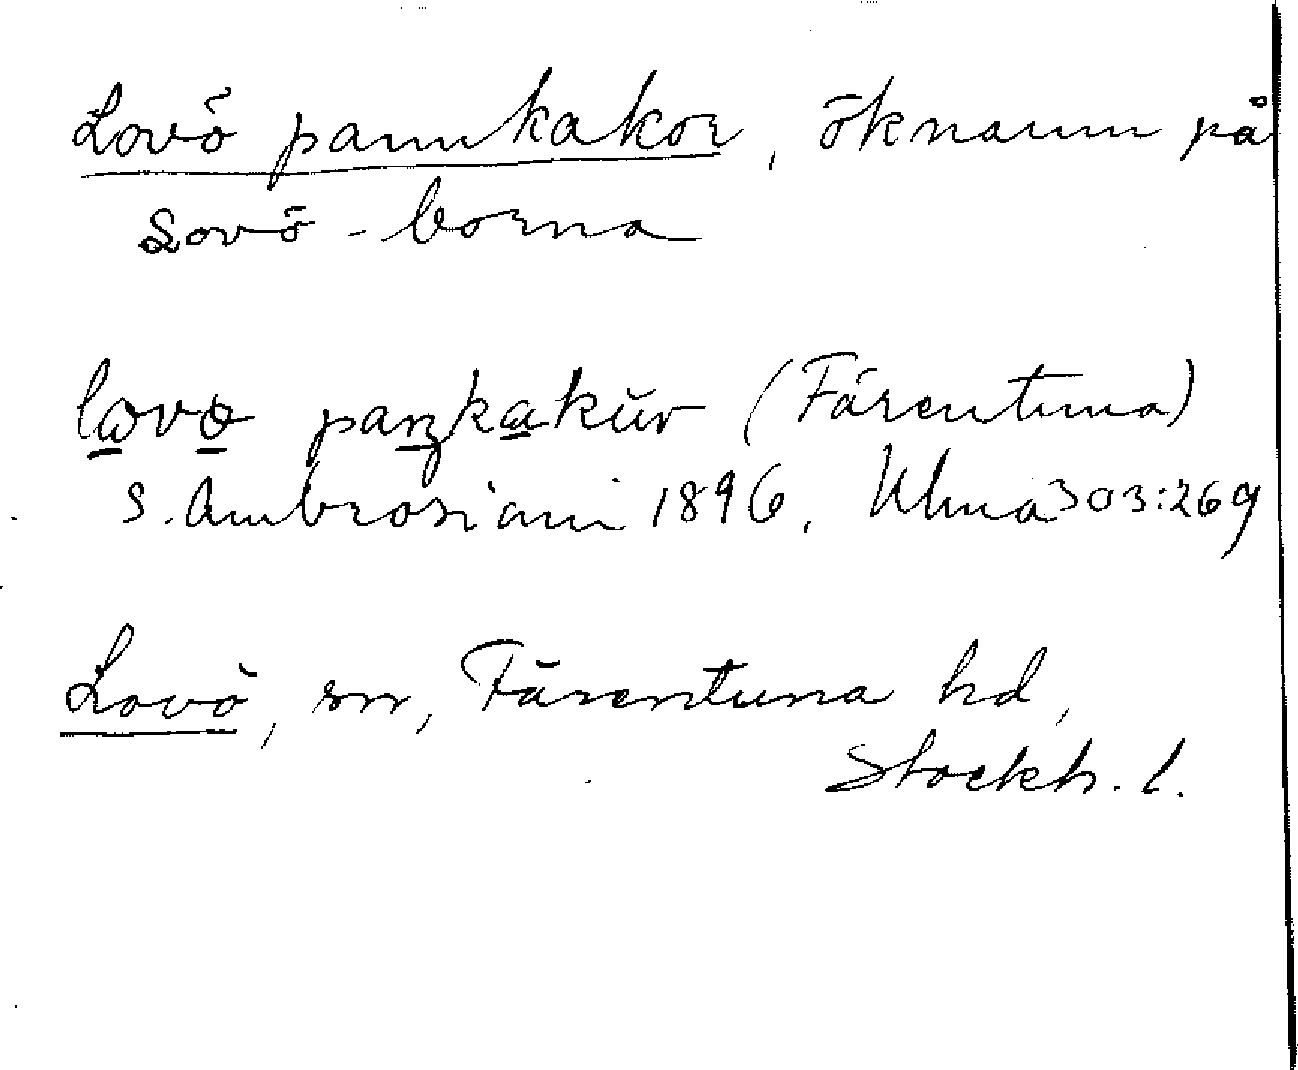 Lovö pannkakor, öknamn på
Lovö-borna
lovo paŋkakŭr (Färentuna)
S. Ambrosiani 1896, Ulma 303:269
Lovö, sn, Färentuna hd,
Stockh. l.